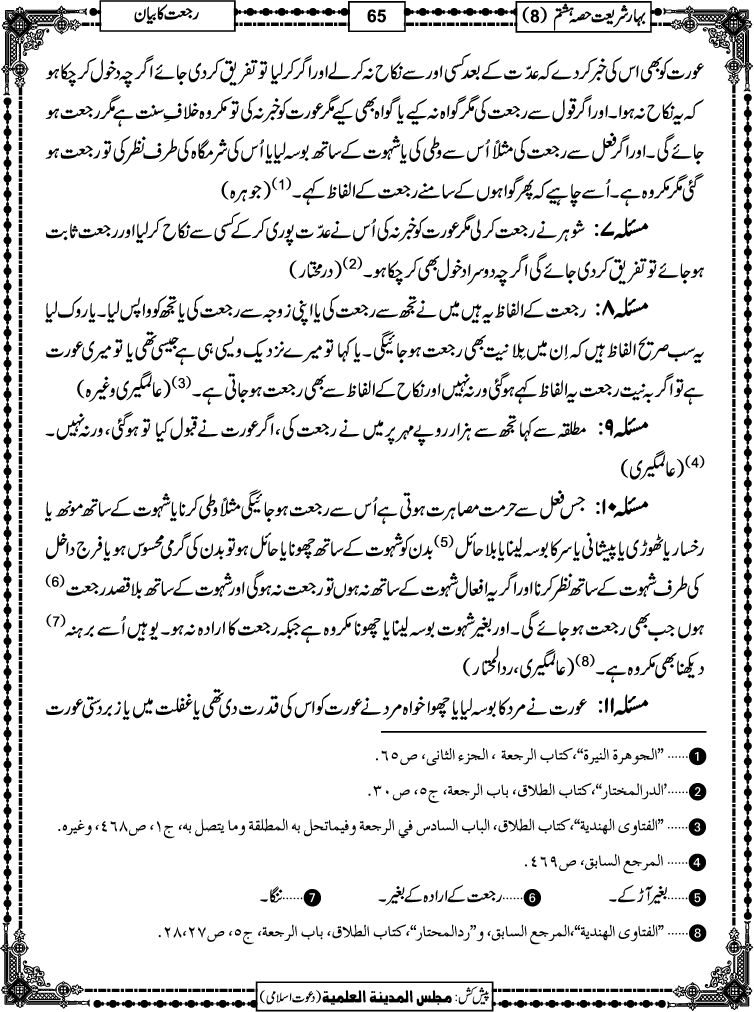 بہارِ شریعت حصہ ہشتم (8)
65
رجعت کا بیان
عورت کو بھی اس کی خبر کردے کہ عدّت کے بعد کسی اور سے نکاح نہ کرلے اور اگر کرلیا تو تفریق کردی جائے اگرچہ دخول کرچکا ہو
کہ یہ نکاح نہ ہوا۔ اور اگر قول سے رجعت کی مگر گواہ نہ کیے یا گواہ بھی کیے مگر عورت کو خبر نہ کی تو مکروہ خلافِ سنت ہے مگر رجعت ہو
جائے گی۔ اور اگر فعل سے رجعت کی مثلاً اُس سے وطی کی یا شہوت کے ساتھ بوسہ لیا یا اُس کی شرمگاہ کی طرف نظر کی تو رجعت ہو
گئی مگر مکروہ ہے۔ اُسے چاہیے کہ پھر گواہوں کے سامنے رجعت کے الفاظ کہے۔(1) (جوہرہ)
مسئلہ ۷: شوہر نے رجعت کرلی مگر عورت کو خبر نہ کی اُس نے عدّت پوری کرکے کسی سے نکاح کرلیا اور رجعت ثابت
ہوجائے تو تفریق کردی جائے گی اگرچہ دوسرا دخول بھی کرچکا ہو۔(2) (درمختار)
مسئلہ ۸: رجعت کے الفاظ یہ ہیں میں نے تجھ سے رجعت کی یا اپنی زوجہ سے رجعت کی یا تجھ کو واپس لیا۔ یا روک لیا
یہ سب صریح الفاظ ہیں کہ اِن میں بِلا نیت بھی رجعت ہوجائیگی۔ یا کہا تو میرے نزدیک ویسی ہی ہے جیسی تھی یا تو میری عورت
ہے تو اگر بہ نیت رجعت یہ الفاظ کہے ہوگئی ورنہ نہیں اور نکاح کے الفاظ سے بھی رجعت ہوجاتی ہے۔(3) (عالمگیری وغیرہ)
مسئلہ ۹: مطلقہ سے کہا تجھ سے ہزار روپے مہر پر میں نے رجعت کی، اگر عورت نے قبول کیا تو ہوگئی، ورنہ نہیں۔
(4) (عالمگیری)
مسئلہ ۱۰: جس فعل سے حرمت مصاہرت ہوتی ہے اُس سے رجعت ہوجائیگی مثلاً وطی کرنا یا شہوت کے ساتھ مونھ یا
رخسار یا ٹھوڑی یا پیشانی یا سر کا بوسہ لینا یا بلا حائل(5) بدن کو شہوت کے ساتھ چھونا یا حائل ہو تو بدن کی گرمی محسوس ہو یا فرج داخل
کی طرف شہوت کے ساتھ نظر کرنا اور اگر یہ افعال شہوت کے ساتھ نہ ہوں تو رجعت نہ ہوگی اور شہوت کے ساتھ بلا قصد رجعت(6)
ہوں جب بھی رجعت ہوجائے گی۔ اور بغیر شہوت بوسہ لینا یا چھونا مکروہ ہے جبکہ رجعت کا ارادہ نہ ہو۔ یوہیں اُسے برہنہ(7)
دیکھنا بھی مکروہ ہے۔(8) (عالمگیری، ردالمحتار)
مسئلہ ۱۱: عورت نے مرد کا بوسہ لیا یا چھوا خواہ مرد نے عورت کو اس کی قدرت دی تھی یا غفلت میں یا زبردستی عورت
1 ...... ”الجوهرة النيرة“، كتاب الرجعة ، الجزء الثانى، ص٦٥.
2 ......’الدرالمختار“، كتاب الطلاق، باب الرجعة، ج٥، ص٣٠.
3 ...... ”الفتاوى الهندية“، كتاب الطلاق، الباب السادس في الرجعة وفيماتحل به المطلقة وما يتصل به، ج١، ص٤٦٨، وغيره.
4 ...... المرجع السابق، ص٤٦٩.
5 ......بغیر آڑ کے۔ 6 ......رجعت کے ارادہ کے بغیر۔ 7 ......ننگا۔
8 ...... ”الفتاوى الهندية“،المرجع السابق، و”ردالمحتار“، كتاب الطلاق، باب الرجعة، ج٥، ص٢٧،٢٨.
پیش کش: مجلس المدينة العلمية (دعوت اسلامی)